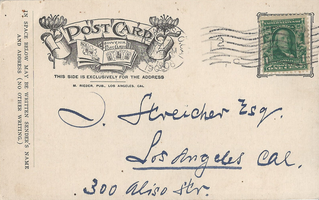 POST CARD
THIS SIDE IS EXCLUSIVELY FOR THE ADDRESS
M. RIEDER, PUB., LOS ANGELES, CAL.
IN SPACE BELOW MAY BE WRITTEN SENDER'S NAME
AND ADDRESS (NO OTHER WRITING.)
J. Streicher Esq.
Los Angeles Cal.
300 Aliso Str.